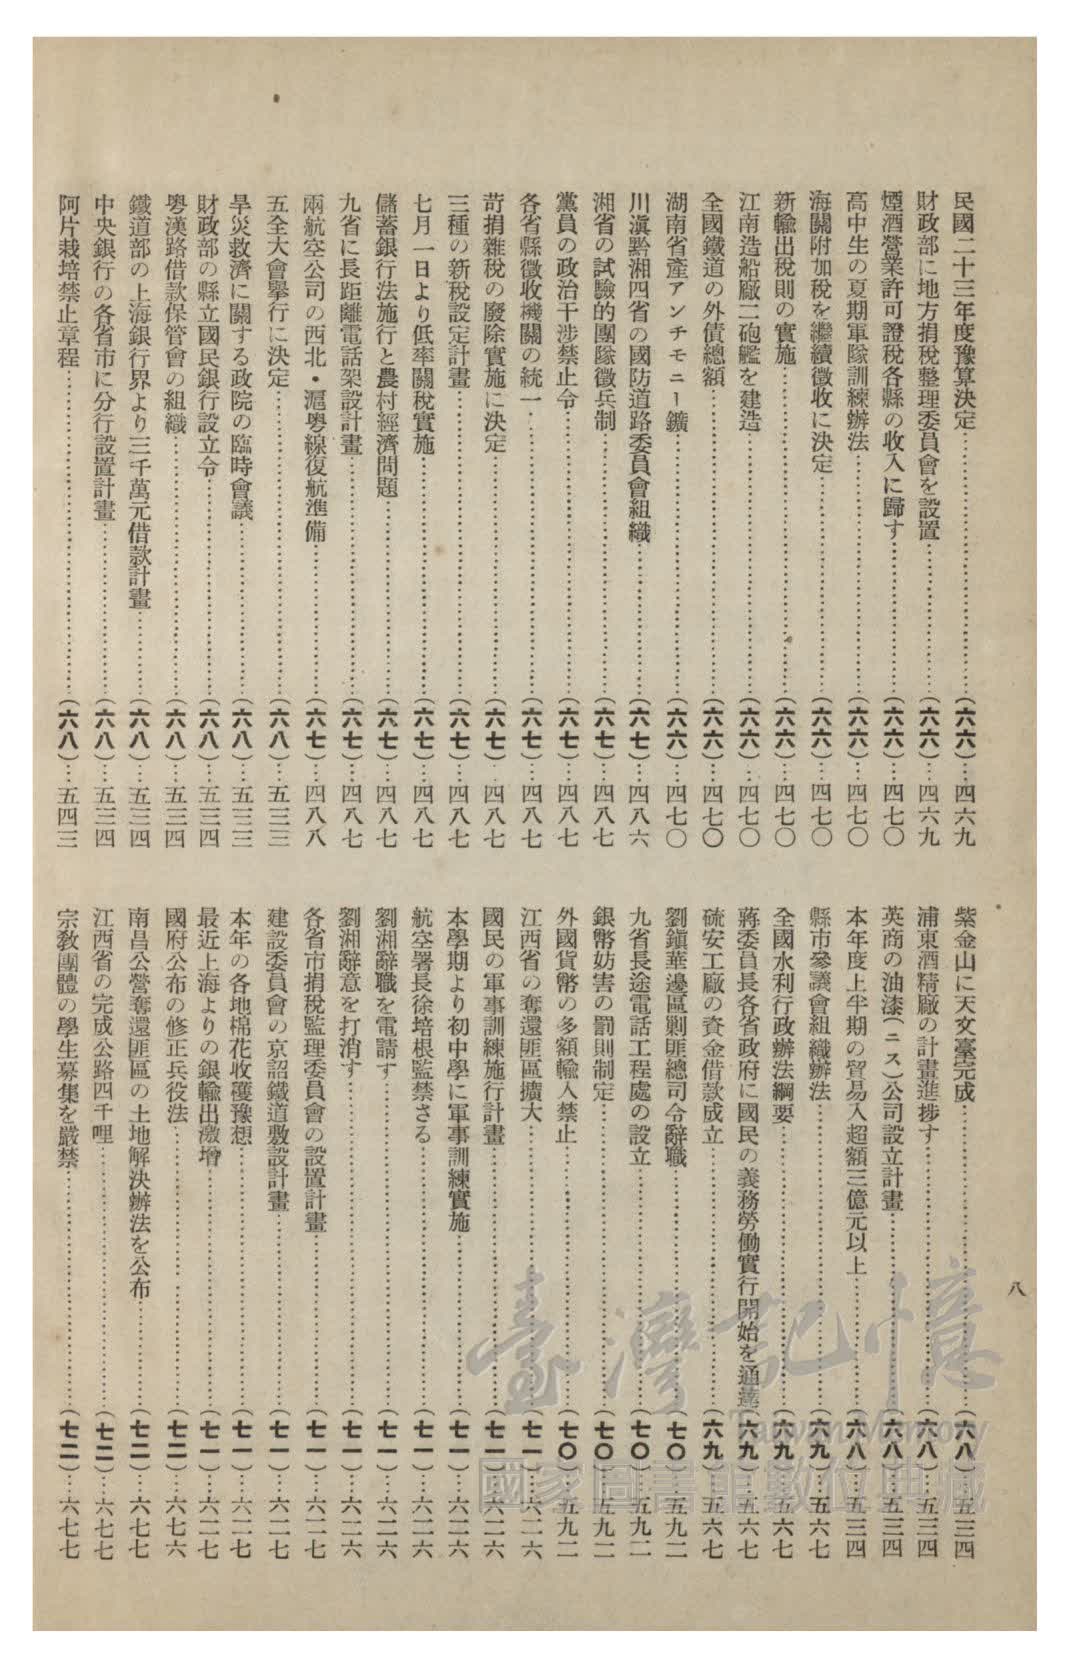 八
民國二十三年度豫算決定…(六六)…四六九
財政部に地方捐稅整理委員會を設置…(六六)…四六九
煙酒營業許可證稅各縣の收入に歸す…(六六)…四七〇
高中生の夏期軍隊訓練辦法…(六六)…四七〇
海關附加稅を繼續徵收に決定…(六六)…四七〇
新輸出稅則の實施…(六六)…四七〇
江南造船廠二砲艦を建造…(六六)…四七〇
全國鐵道の外債總額…(六六)…四七〇
湖南省產アンチモニー鑛…(六六)…四七〇
川滇黔湘四省の國防道路委員會組織…(六七)…四八六
湘省の試驗的團隊徵兵制…(六七)…四八七
黨員の政治干涉禁止令…(六七)…四八七
各省縣徵收機關の統一…(六七)…四八七
苛捐雜稅の廢除實施に決定…(六七)…四八七
三種の新稅設定計畫…(六七)…四八七
七月一日より低率關稅實施…(六七)…四八七
儲蓄銀行法施行と農村經濟問題…(六七)…四八七
九省に長距離電話架設計畫…(六七)…四八七
兩航空公司の西北・滬粤線復航準備…(六七)…四八八
五全大會擧行に決定…(六八)…五三三
旱災救濟に關する政院の臨時會議…(六八)…五三三
財政部の縣立國民銀行設立令…(六八)…五三四
粤漢路借款保管會の組織…(六八)…五三四
鐵道部の上海銀行界より三千萬元借款計畫…(六八)…五三四
中央銀行の各省市に分行設置計畫…(六八)…五三四
阿片栽培禁止章程…(六八)…五四三
紫金山に天文臺完成…(六八)…五三四
浦東酒精廠の計畫進捗す…(六八)…五三四
英商の油漆(ニス)公司設立計畫…(六八)…五三四
本年度上半期の貿易入超額三億元以上…(六八)…五三四
縣市參議會組織辦法…(六九)…五六七
全國水利行政辦法綱要…(六九)…五六七
蔣委員長各省政府に國民の義務勞働實行開始を通達(六九)…五六七
硫安工廠の資金借款成立…(六九)…五六七
劉鎭華邊區剿匪總司令辭職…(七〇)…五九二
九省長途電話工程處の設立…(七〇)…五九二
銀幣妨害の罰則制定…(七〇)…五九二
外國貨幣の多額輸入禁止…(七〇)…五九二
江西省の奪還匪區擴大…(七一)…六二六
國民の軍事訓練施行計畫…(七一)…六二六
本學期より初中學に軍事訓練實施…(七一)…六二六
航空署長徐培根監禁さる…(七一)…六二六
劉湘辭職を電請す…(七一)…六二六
劉湘辭意を打消す…(七一)…六二六
各省市捐稅監理委員會の設置計畫…(七一)…六二七
建設委員會の京詔鐵道敷設計畫…(七一)…六二七
本年の各地棉花收穫豫想…(七一)…六二七
最近上海よりの銀輸出激增…(七一)…六二七
國府公布の修正兵役法…(七二)…六七六
南昌公營奪還匪區の土地解決辦法を公布…(七二)…六七七
江西省の完成公路四千哩…(七二)…六七七
宗敎團體の學生募集を嚴禁…(七二)…六七七
臺灣記憶
Taiwan Memory
國家圖書館數位典藏